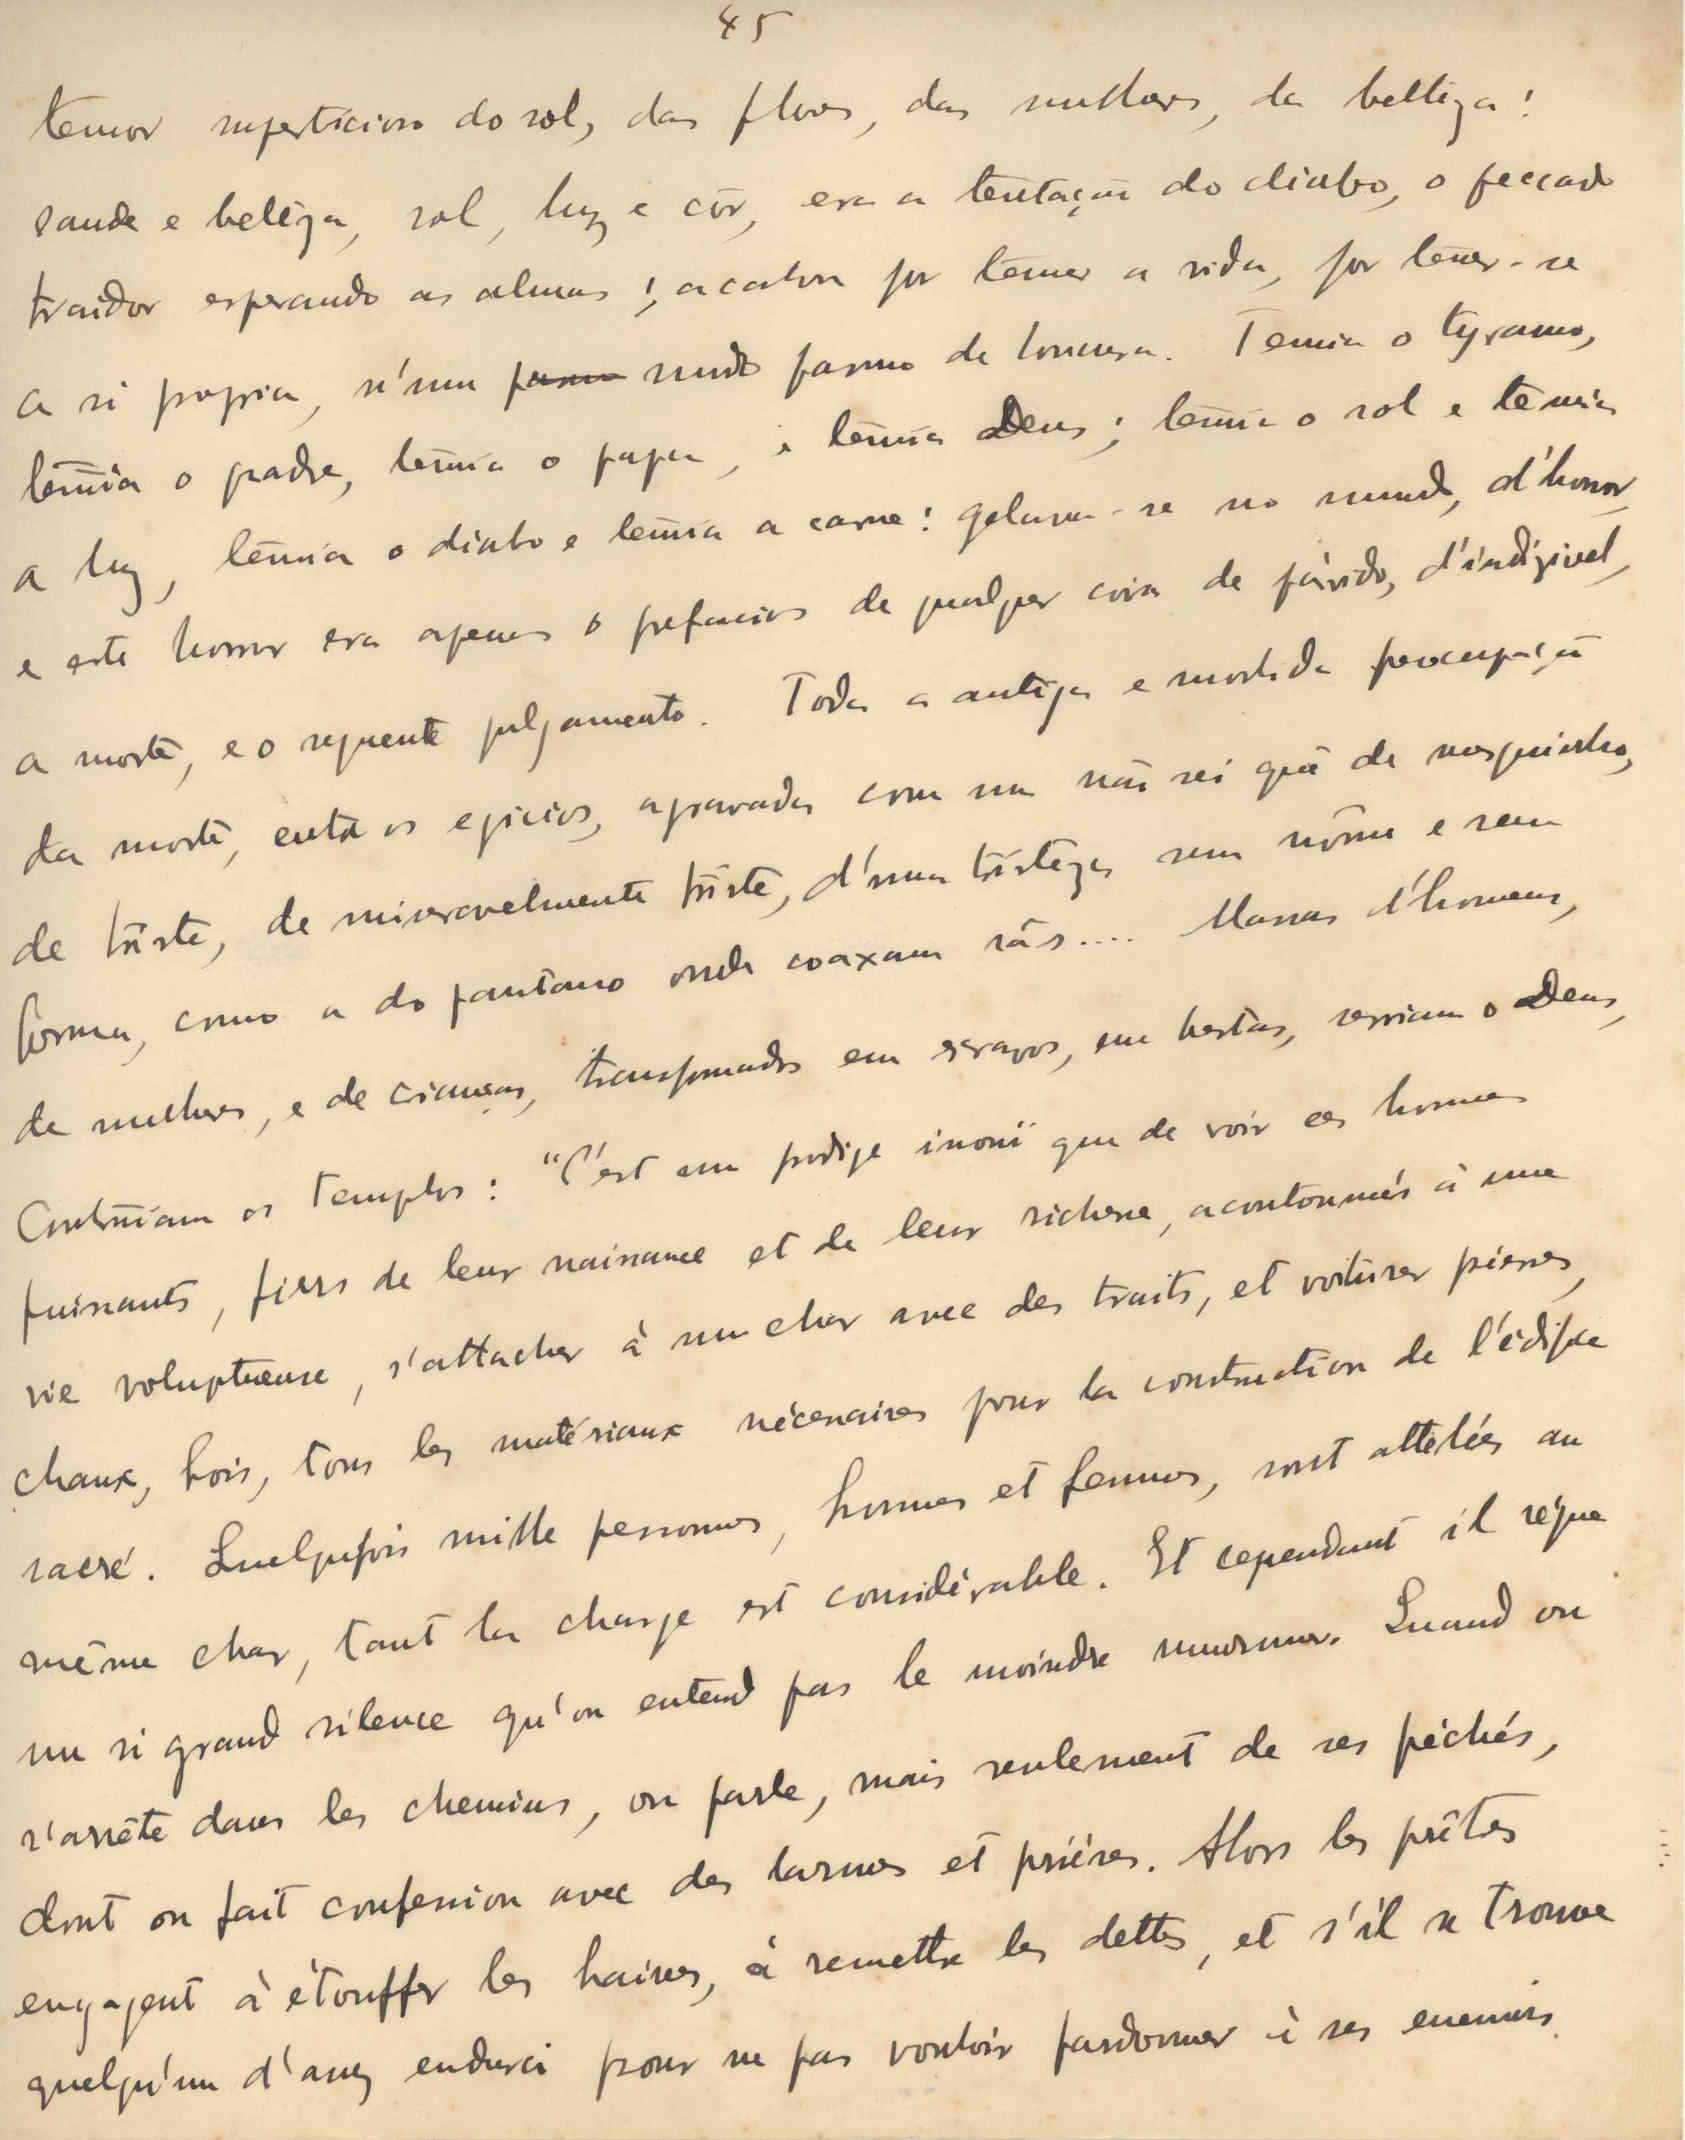 45
temor superticioso do sol, das flores, das mulheres, da belleza!
saude e beleza, sol, luz e côr, era a tentação do diabo, o peccado
traidor esperando as almas!; acabou por temer a vida, por temer-se
a si propria, n'um pasmo mudo pasmo de loucura. Temia o tyranno,
temia o padre, temia o papa, e temia Deus; temia o sol e temia
a luz, temia o diabo e temia a carne! gelava-se no mundo, d'horror,
e este horror era apenas o prefacios de qualquer coisa de pávido, d'indizivel,
a morte, e o seguente julgamento. Toda a antiga e morbida preocupação
da morte, entre os egicios, agravada com um não sei quê de mesquinho,
de triste, de miseravelmente triste, d'uma tristeza sem nôme e sem
forma, como a do pantano onde coaxam rãs.... Massas d'homens,
de mulheres, e de crianças, transformados em escravos, em bestas, serviam o Deus,
Construiam os Templos: "C'est un prodige inouï que de voir ces hommes
puissants, fiers de leur naissance et de leur richesse, acoutoumés à une
vie voluptueuse, s'attacher à un char avec des traits, et voiturer pierres,
chaux, bois, tous les matériaux nécessaires pour la construction de l'édifice
sacré. Quelquefois mille personnes, hommes et femmes, sont attelées au
même char, tant la charge est considérable. Et cependant il règne
un si grand silence qu'on entend pas le moindre murmur. Quand on
s'arrête dans les chemins, on parle, mais seulement de ses péchés,
dont on fait confession avec des larmes et prières. Alors les prêtres
engagent à étouffer les haines, à remettre les dettes, et s'il se trouve
quelqu'un d'assez endurci pour ne pas vouloir pardonner à ses enemis